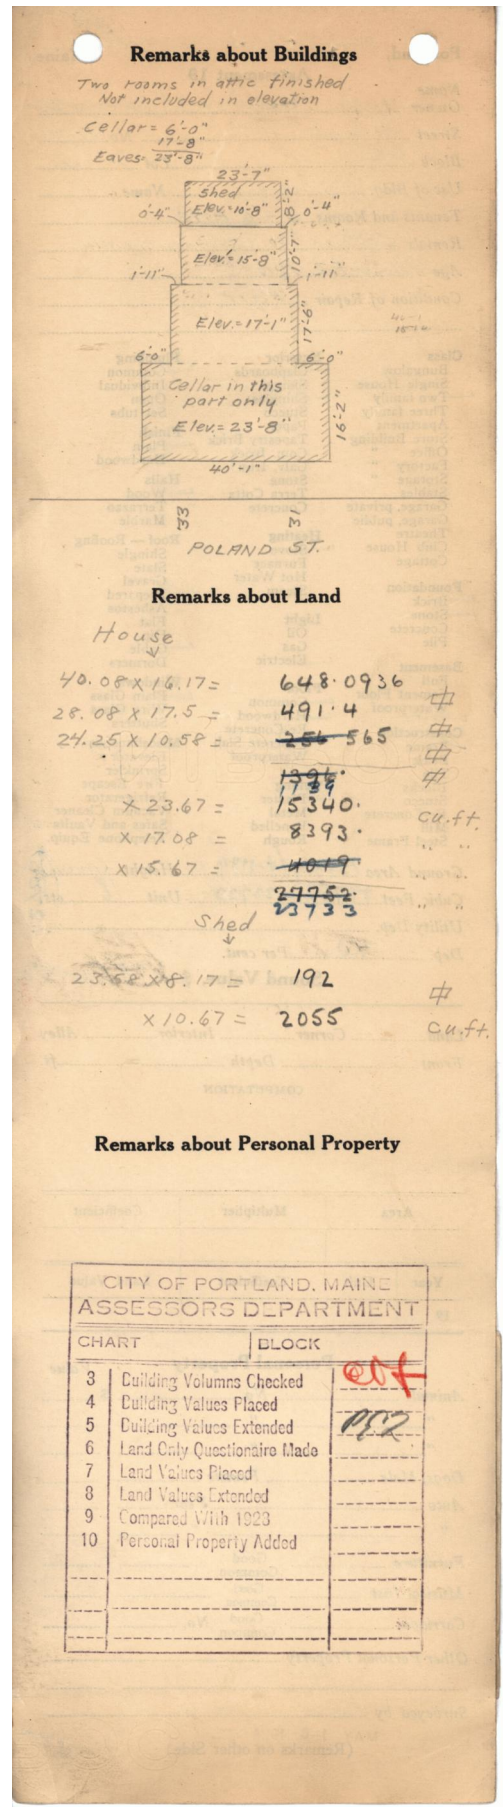 Remarks about Buildings
Two rooms in attic finished
Not included in elevation
Cellar = 6'-0"
17'-8"
Eaves= 23'-8"
23'-7"
Shed
Elev.=10'-8"
8'-2"
0'-4"
0'-4"
Elev.=15'-8"
10'-7"
1'-11"
1'-11"
Elev.=17'-1"
17'-6"
6'-0"
6'-0"
Cellar in this
part only
Elev.=23'-8"
16'-2"
40'-1"
33
31
POLAND ST.
Remarks about Land
House
40.08 X 16.17 = 648.0936
28.08 X 17.5 = 491.4
24.25 X 10.58 = 256 565
1396.
1739
X 23.67 = 15340. cu.ft.
X 17.08 = 8393. " "
X 15.67 = 4019
27752.
23733 " "
Shed
23.58 X 8.17 = 192
X 10.67 = 2055 cu.ft.
Remarks about Personal Property
CITY OF PORTLAND, MAINE
ASSESSORS DEPARTMENT
CHART BLOCK
3 Building Volumns Checked
4 Building Values Placed
5 Building Values Extended
6 Land Only Questionaire Made
7 Land Values Placed
8 Land Values Extended
9 Compared With 1923
10 Personal Property Added